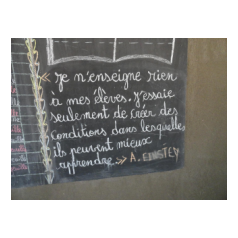 « je n'enseigne rien
à mes élèves. J'essaie
seulement de créer des
conditions dans lesquelles
ils peuvent mieux
apprendre » A. EINSTEY